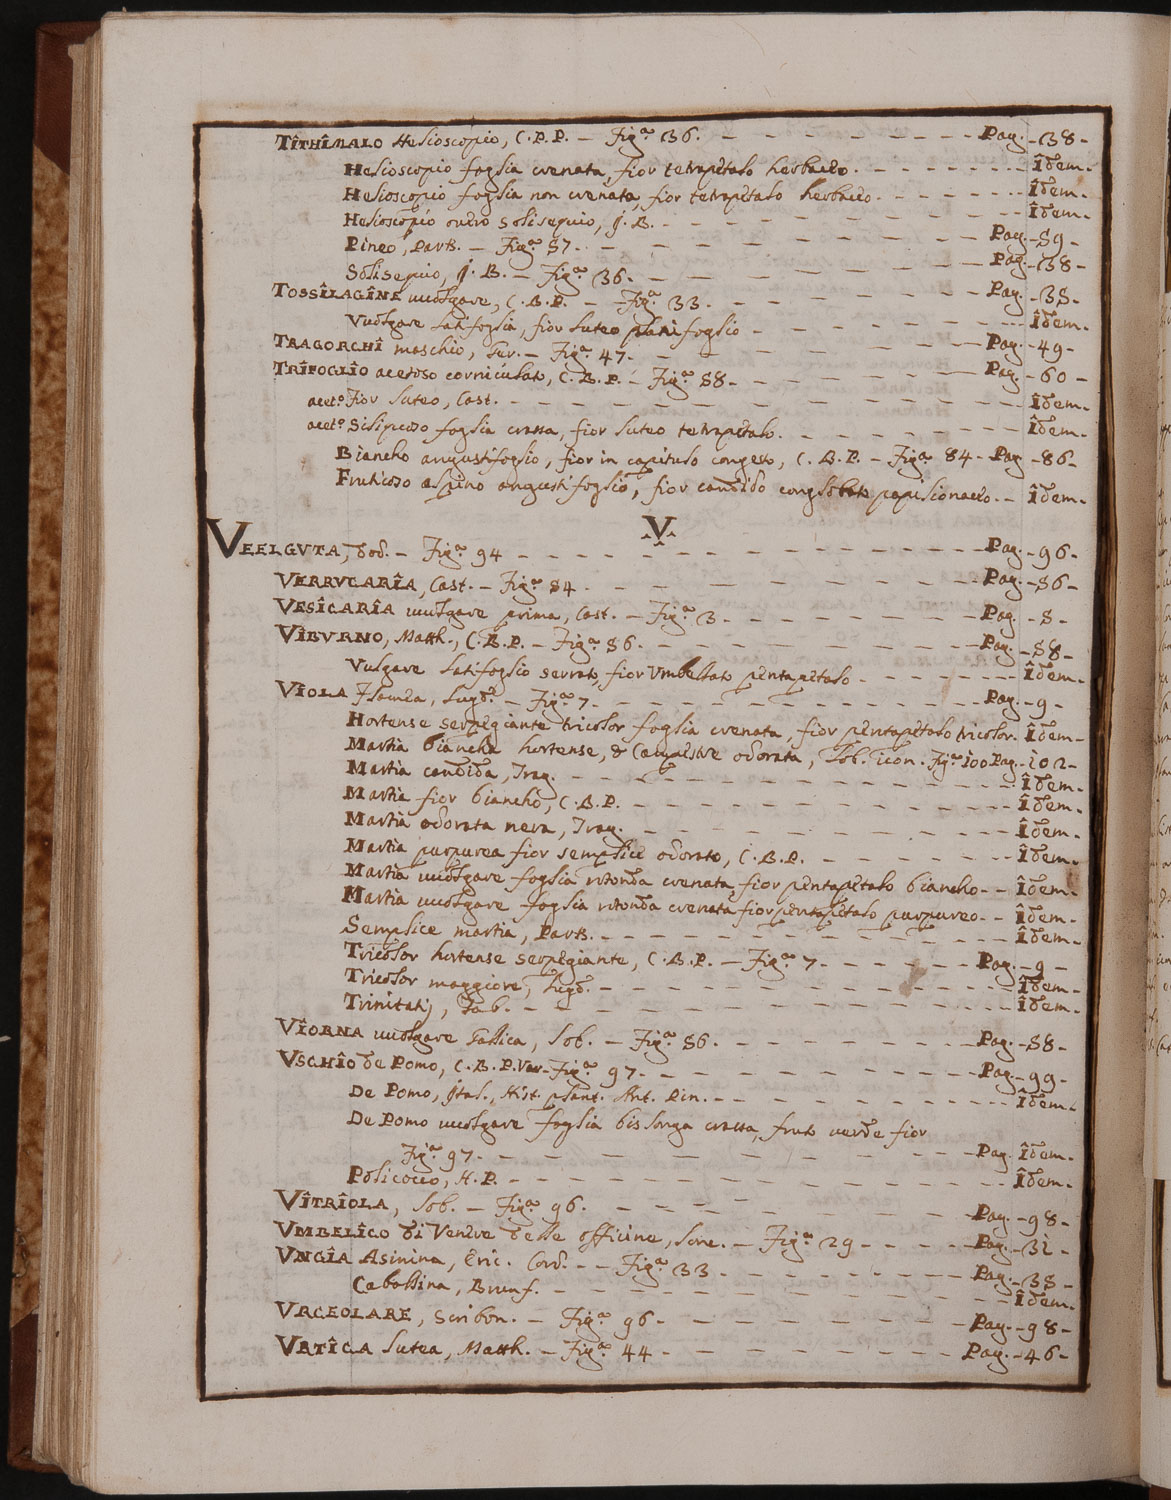 TÎTHÎMALO Helioscopio, C.B.P. – Fig.ª 36. – – – Pag. – 38 –
Helioscopio foglia crenata, fior tetrapetalo herbaceo. – – – Îdem.
Helioscopio foglia non crenata, fior tetrapetalo herbaceo. – – – Îdem.
Helioscopio overo solisequio, J.B. – – – Îdem.
Pineo, Park. – Fig.ª 57. – – – Pag. – 59 –
Solisequio, J.B. – Fig.ª 36. – – – Pag. – 38 –
TOSSÎLAGÎNE vuolgare, C.B.P. – Fig.ª 33. – – – Pag. – 35 –
Vuolgare latifoglia, fior luteo foglio – – – Îdem.
TRAGORCHÎ maschio, Ger. – Fig.ª 47. – – – Pag. – 49 –
TRÎFOGLÎO acetoso corniculato, C.B.P. – Fig.ª 58 – – – Pag. – 60 –
acet.º Fior luteo, Cast. – – – Îdem.
acet.º foglia crassa, fior luteo tetrapetalo. – – – Îdem.
Biancho angustifoglio, fior in capitulo congesto, C.B.P. – Fig.ª 84 – Pag – 86 –
Fruticoso aspino angustifoglio, fior candido conglobato papilionaceo. – Îdem.
V
VEELGVTA, Dod. – Fig.ª 94 – – – Pag. – 96 –
VERRVCARÎA, Cast. – Fig.ª 54 – – – Pag. – 56 –
VESÎCARÎA vuolgare prima, Cast. – Fig.ª 3 – – – Pag. – 5 –
VÎBVRNO, Matth., C.B.P. – Fig.ª 56. – – – Pag. – 58 –
Vulgare latifoglio serrato, fior Vmbellato pentapetalo – – – Îdem.
VÎOLA Flamea, Lugd.ª – Fig.ª 7 – – – Pag. – 9 –
Hortense serpegiante tricolor foglia crenata, fior pentapetalo tricolor. Îdem –
Martia biancha hortense, & Campestre odorata, Lob. icon. Fig.ª 100 Pag. – 102 –
Martia candida, Trag. – – – Îdem.
Martia fior biancho, C.B.P. – – – Îdem.
Martia odorata nera, Trag. – – – Îdem.
Martia purpurea fior semplice odorato, C.B.P. – – – Îdem.
Martia vuolgare foglia rotonda crenata, fior pentapetalo biancho – – Îdem.
Martia vuolgare foglia rotonda crenata fior pentapetalo purpureo. – – Îdem.
Semplice martia, Park. – – – Îdem.
Tricolor hortense serpegiante, C.B.P. – Fig.ª 7 – – – Pag. – 9 –
Tricolor maggiore, Lugd. – – – Îdem –
Trinitatis, Tab. – – – Îdem.
VÎORNA vuolgare Gallica, Lob. – Fig.ª 56. – – – Pag. – 58 –
VSCHÎO de Pomo, C.B.P. Var – Fig.ª 97 – – – Pag. – 99 –
De Pomo, Ital., Hist. plant. Ant. Pin. – – – Îdem.
De Pomo vuolgare foglia bislonga crassa, fruto verde fior
Fig.ª 97 – – – Pag. Îdem.
Policocco, H.P. – – – Îdem.
VÎTRÎOLA, Lob. – Fig.ª 96. – – – Pag. – 98 –
VMBELÎCO di Venere delle officine, Lone. – Fig.ª 29 – – – Pag. – 31 –
VNGÎA Asinina, Eric. Cord. – – Fig.ª 33 – – – Pag. – 35 –
Caballina, Brunf. – – – Îdem.
VRCEOLARE, Scribon. – Fig.ª 96 – – – Pag. – 98 –
VRTÎCA lutea, Matth. – Fig.ª 44 – – – Pag. – 46 –